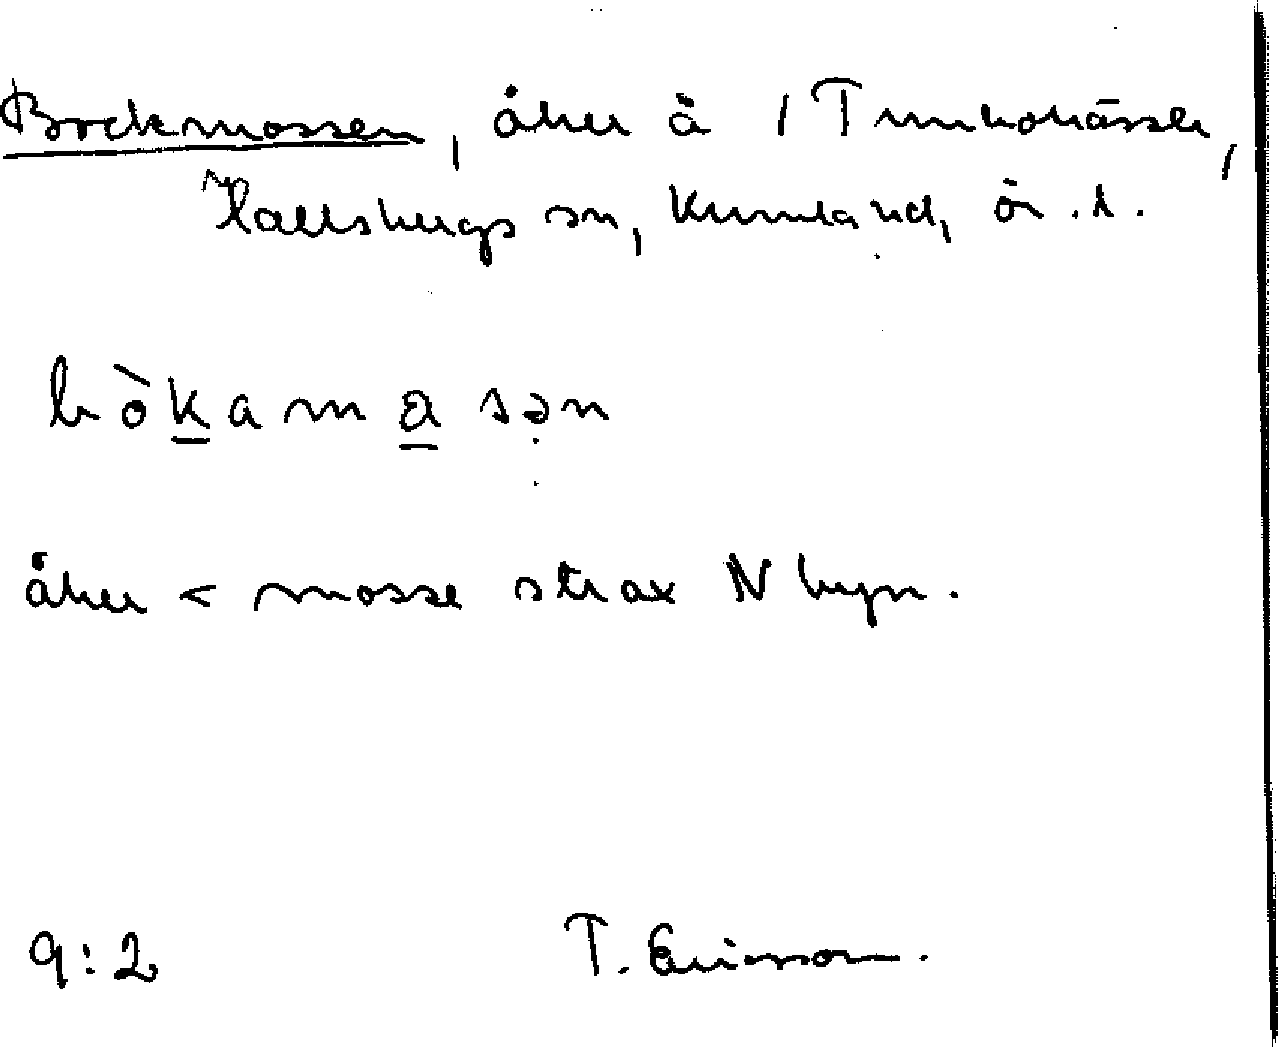 Bockmossen, åker å 1 Tunkohässle,
Hallsbergs sn, Kumla hd, ör. l.
bòkamasən
åker < mosse strax N byn.
9:2 T. Ericsson.